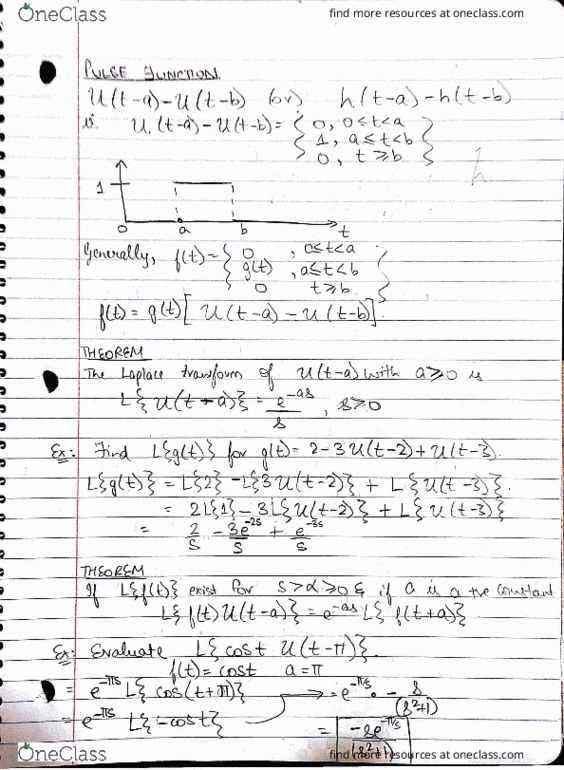 OneClass
find more resources at oneclass.com
PULSE FUNCTION
U(t-a)-U(t-b) (or) h(t-a)-h(t-b)
ie. U(t-a)-U(t-b) = { 0, 0≤t<a
1, a≤t<b
0, t≥b }
h
1
0 a b t
Generally, f(t) = { 0, 0≤t<a
g(t), a≤t<b
0 t≥b }
f(t) = g(t) [ U(t-a) - U(t-b) ]
THEOREM
The Laplace transform of U(t-a) with a≥0 is
L{ U(t-a) } = e^-as / s , s>0
Ex: Find L{g(t)} for g(t) = 2-3U(t-2)+U(t-3).
L{g(t)} = L{2} - L{3U(t-2)} + L{U(t-3)}.
= 2L{1} - 3L{U(t-2)} + L{U(t-3)}
= 2/s - 3e^-2s/s + e^-3s/s
THEOREM
If L{f(t)} exist for s>α≥0 & if a is a +ve constant
L{f(t)U(t-a)} = e^-as L{f(t+a)}
Ex: Evaluate L{cost U(t-π)}.
f(t) = cost a=π
= e^-πs L{cos(t+π)} → = e^-πs · -s/(s²+1)
= e^-πs L{-cost}
= -se^-πs/(s²+1)
OneClass
find more resources at oneclass.com